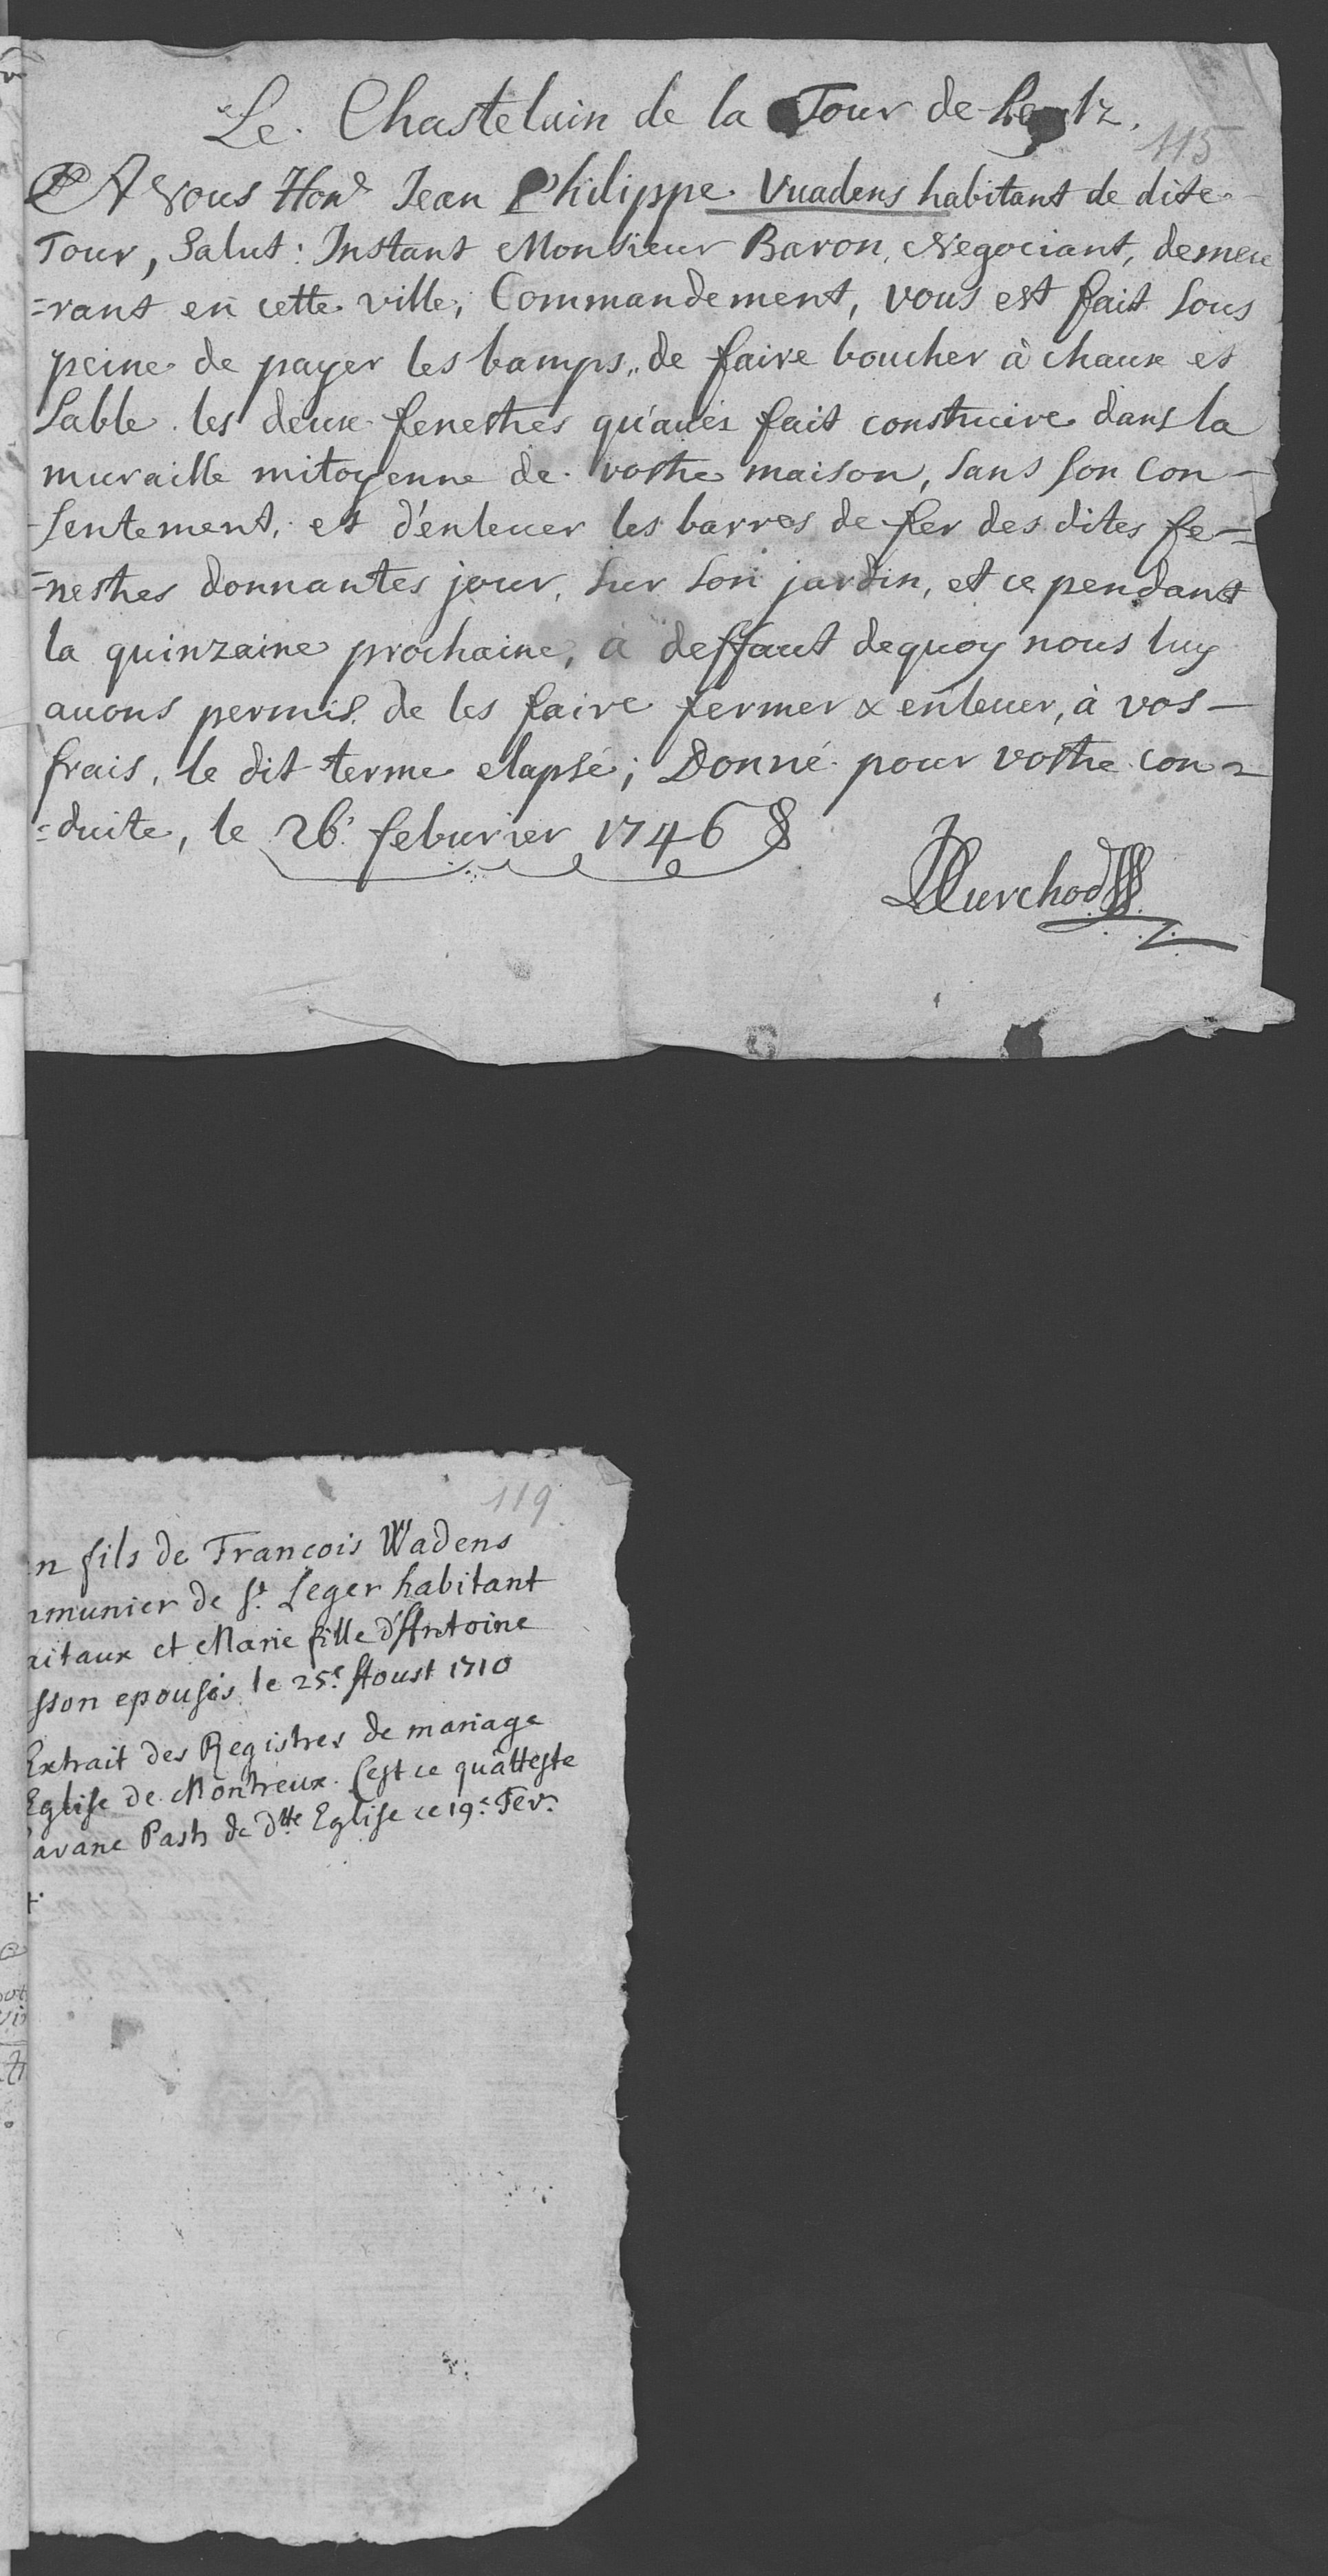 Le Chastelain de la Tour de
115
A Vous Hon.e Jean Philippe Vuadens habitant de dite
Tour, Salut: Instant Monsieur Baron, Negociant, demeu
=rant en cette ville, Commandement, vous est fait sous
peine de payer les bamps, de faire boucher à chaux et
sable les deux fenestres qu'avés fait construire dans la
muraille mitoyenne de vostre maison, sans son con-
-sentement, et d'enleuer les barres de fer des dites fe=
=nestres donnantes jour, sur son jardin, et ce pendant
la quinzaine prochaine, à deffaut dequoy nous luy
auons permis de les faire fermer & enleuer, à vos-
frais, le dit terme elapsé; Donné pour vostre con=
=duite, le 26.e feburier 1746
Curchod
119
n fils de Francois Wadens
munier de St. Leger habitant
aitaux et Marie fille d'Antoine
sson epousés le 25.e Aoust 1710
Extrait des Registres de mariage
Eglise de Montreux. C'est ce qu'atteste
avane Past.r de d.tte Eglise ce 19.e Fev.r